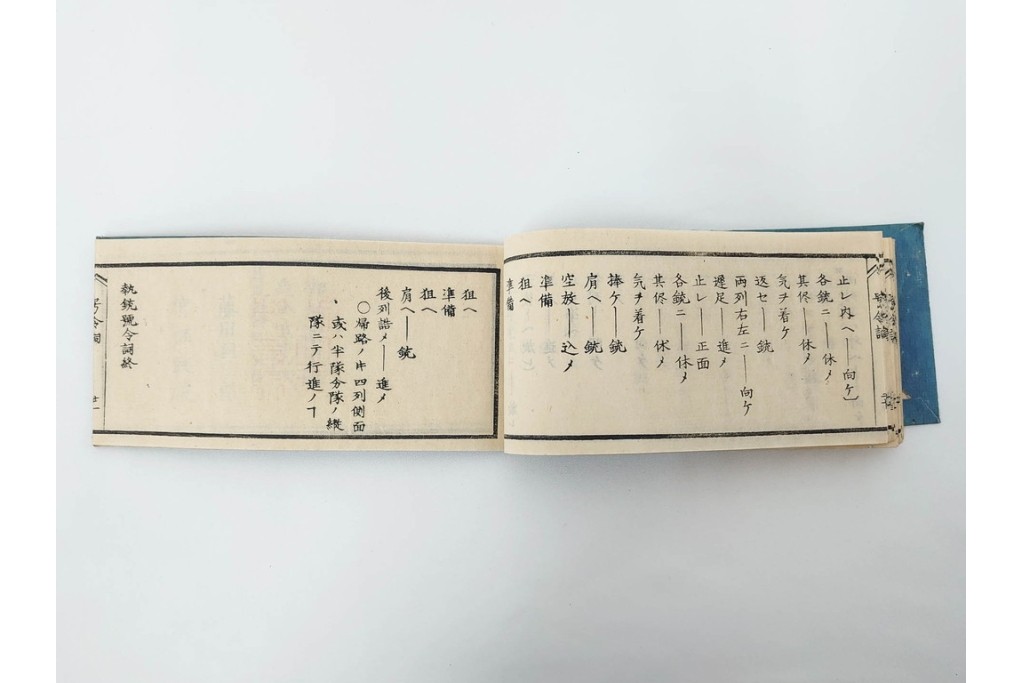 止レ内ヘ――向ケ〕
各銃ニ――休メ
其侭――休メ
気ヲ着ケ
返セ――銃
両列右左ニ――向ケ
速足――進メ
止レ――正面
各銃ニ――休メ
其侭――休メ
気ヲ着ケ
捧ケ――銃
肩ヘ――銃
空放――込メ
準備
狙ヘ
準備
狙ヘ
準備
狙ヘ
肩ヘ――銃
後列詰メ――進メ
〇帰路ノ時四列側面
、或ハ半隊分隊ノ縦
隊ニテ行進ノヿ
執銃號令詞終
号令詞
廿一